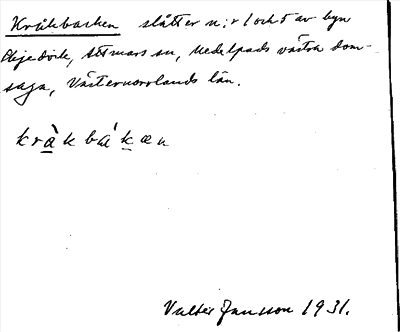 Kråkbacken slåtter n:r 1 och 5 av byn
Öjedörk, Attmars sn, Medelpads västra dom-
saga, Västernorrlands län.
kràkbákæn
Valter Jansson 1931.